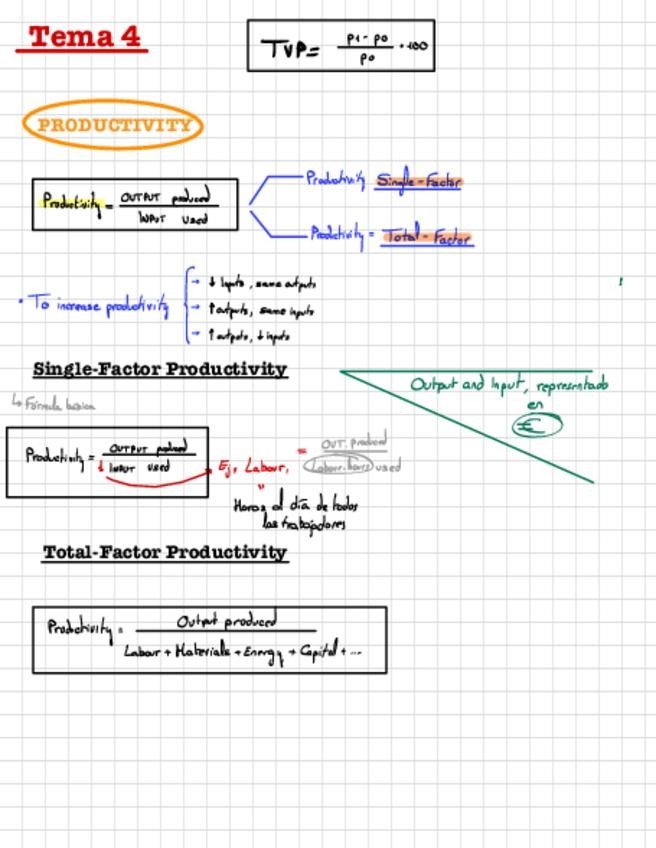 Tema 4
TVP = p1 - p0 / p0 · 100
PRODUCTIVITY
Productivity = OUTPUT produced / INPUT used
Productivity Single-Factor
Productivity = Total-Factor
· To increase productivity
→ ↓ inputs, same outputs
→ ↑ outputs, same inputs
→ ↑ outputs, ↓ inputs
Single-Factor Productivity
↳ Fórmula básica
Output and Input, representado
en
€
Productivity = OUTPUT produced / INPUT used
Ej, Labour, = OUT. produced / Labour-hours used
"
Horas al día de todos
los trabajadores
Total-Factor Productivity
Productivity = Output produced / Labour + Materials + Energy + Capital + ...